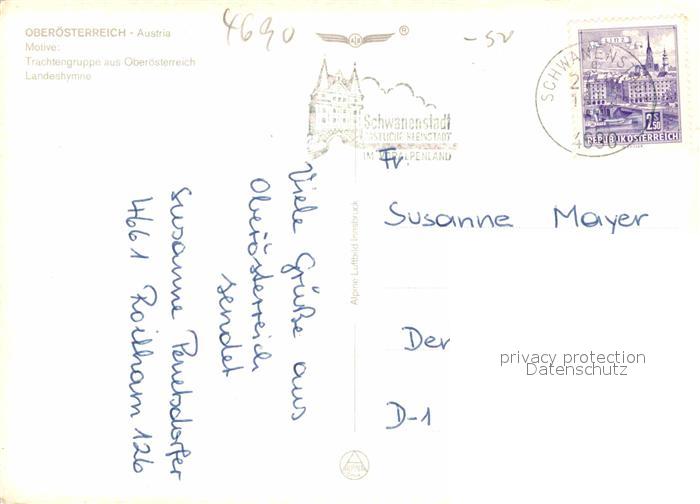 OBERÖSTERREICH - Austria
Motive:
Trachtengruppe aus Oberösterreich
Landeshymne
4690
®
-50
LINZ
2.50
S
REPUBLIK ÖSTERREICH
Schwanenstadt
GASTLICHE KLEINSTADT
IM VORALPENLAND
Viele Grüße aus
Oberösterreich
sendet
Susanne
4661 Roitham 126
Alpine Luftbild Innsbruck
Fr.
Susanne Mayer
Der
D-1
privacy protection
Datenschutz